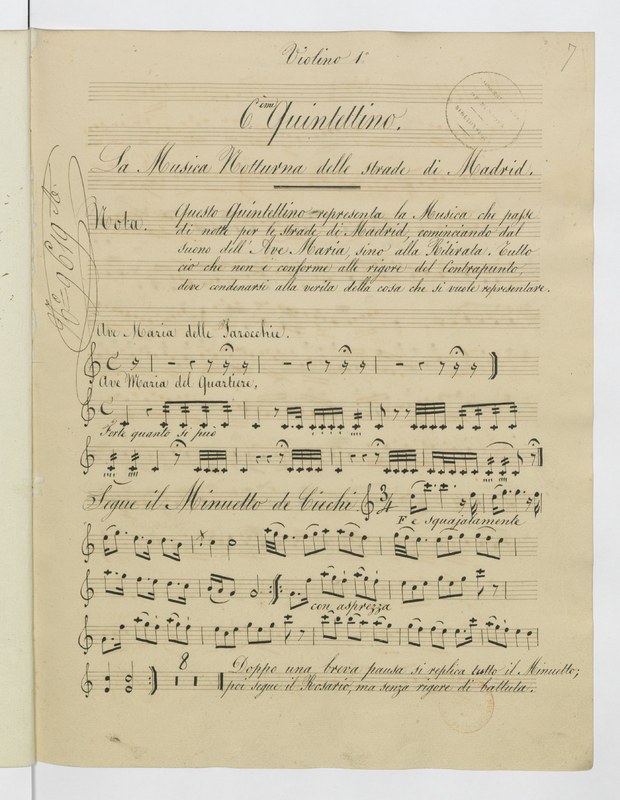 Violino 1º
7
6 emo Quintettino.
La Musica Notturna delle strade di Madrid.
Nota. Questo Quintettino representa la Musica che passe
di notte per le strade di Madrid, cominciando dal
suono dell' Ave Maria, sino alla Ritirata. Tutto
cio che non e conforme alle rigore del Contrapunto,
deve condenarsi alla verita della cosa che si vuole representare.
Ave Maria delle Parocchie.
Ave Maria del Quartiere,
Forte quanto si può
Segue il Minuetto de Ciechi 3/4
F. e sguajatamente
con asprezza
8
Doppo una breva pausa si replica tutto il Minuetto;
poi segue il Rosario, ma senza rigore di battuta.